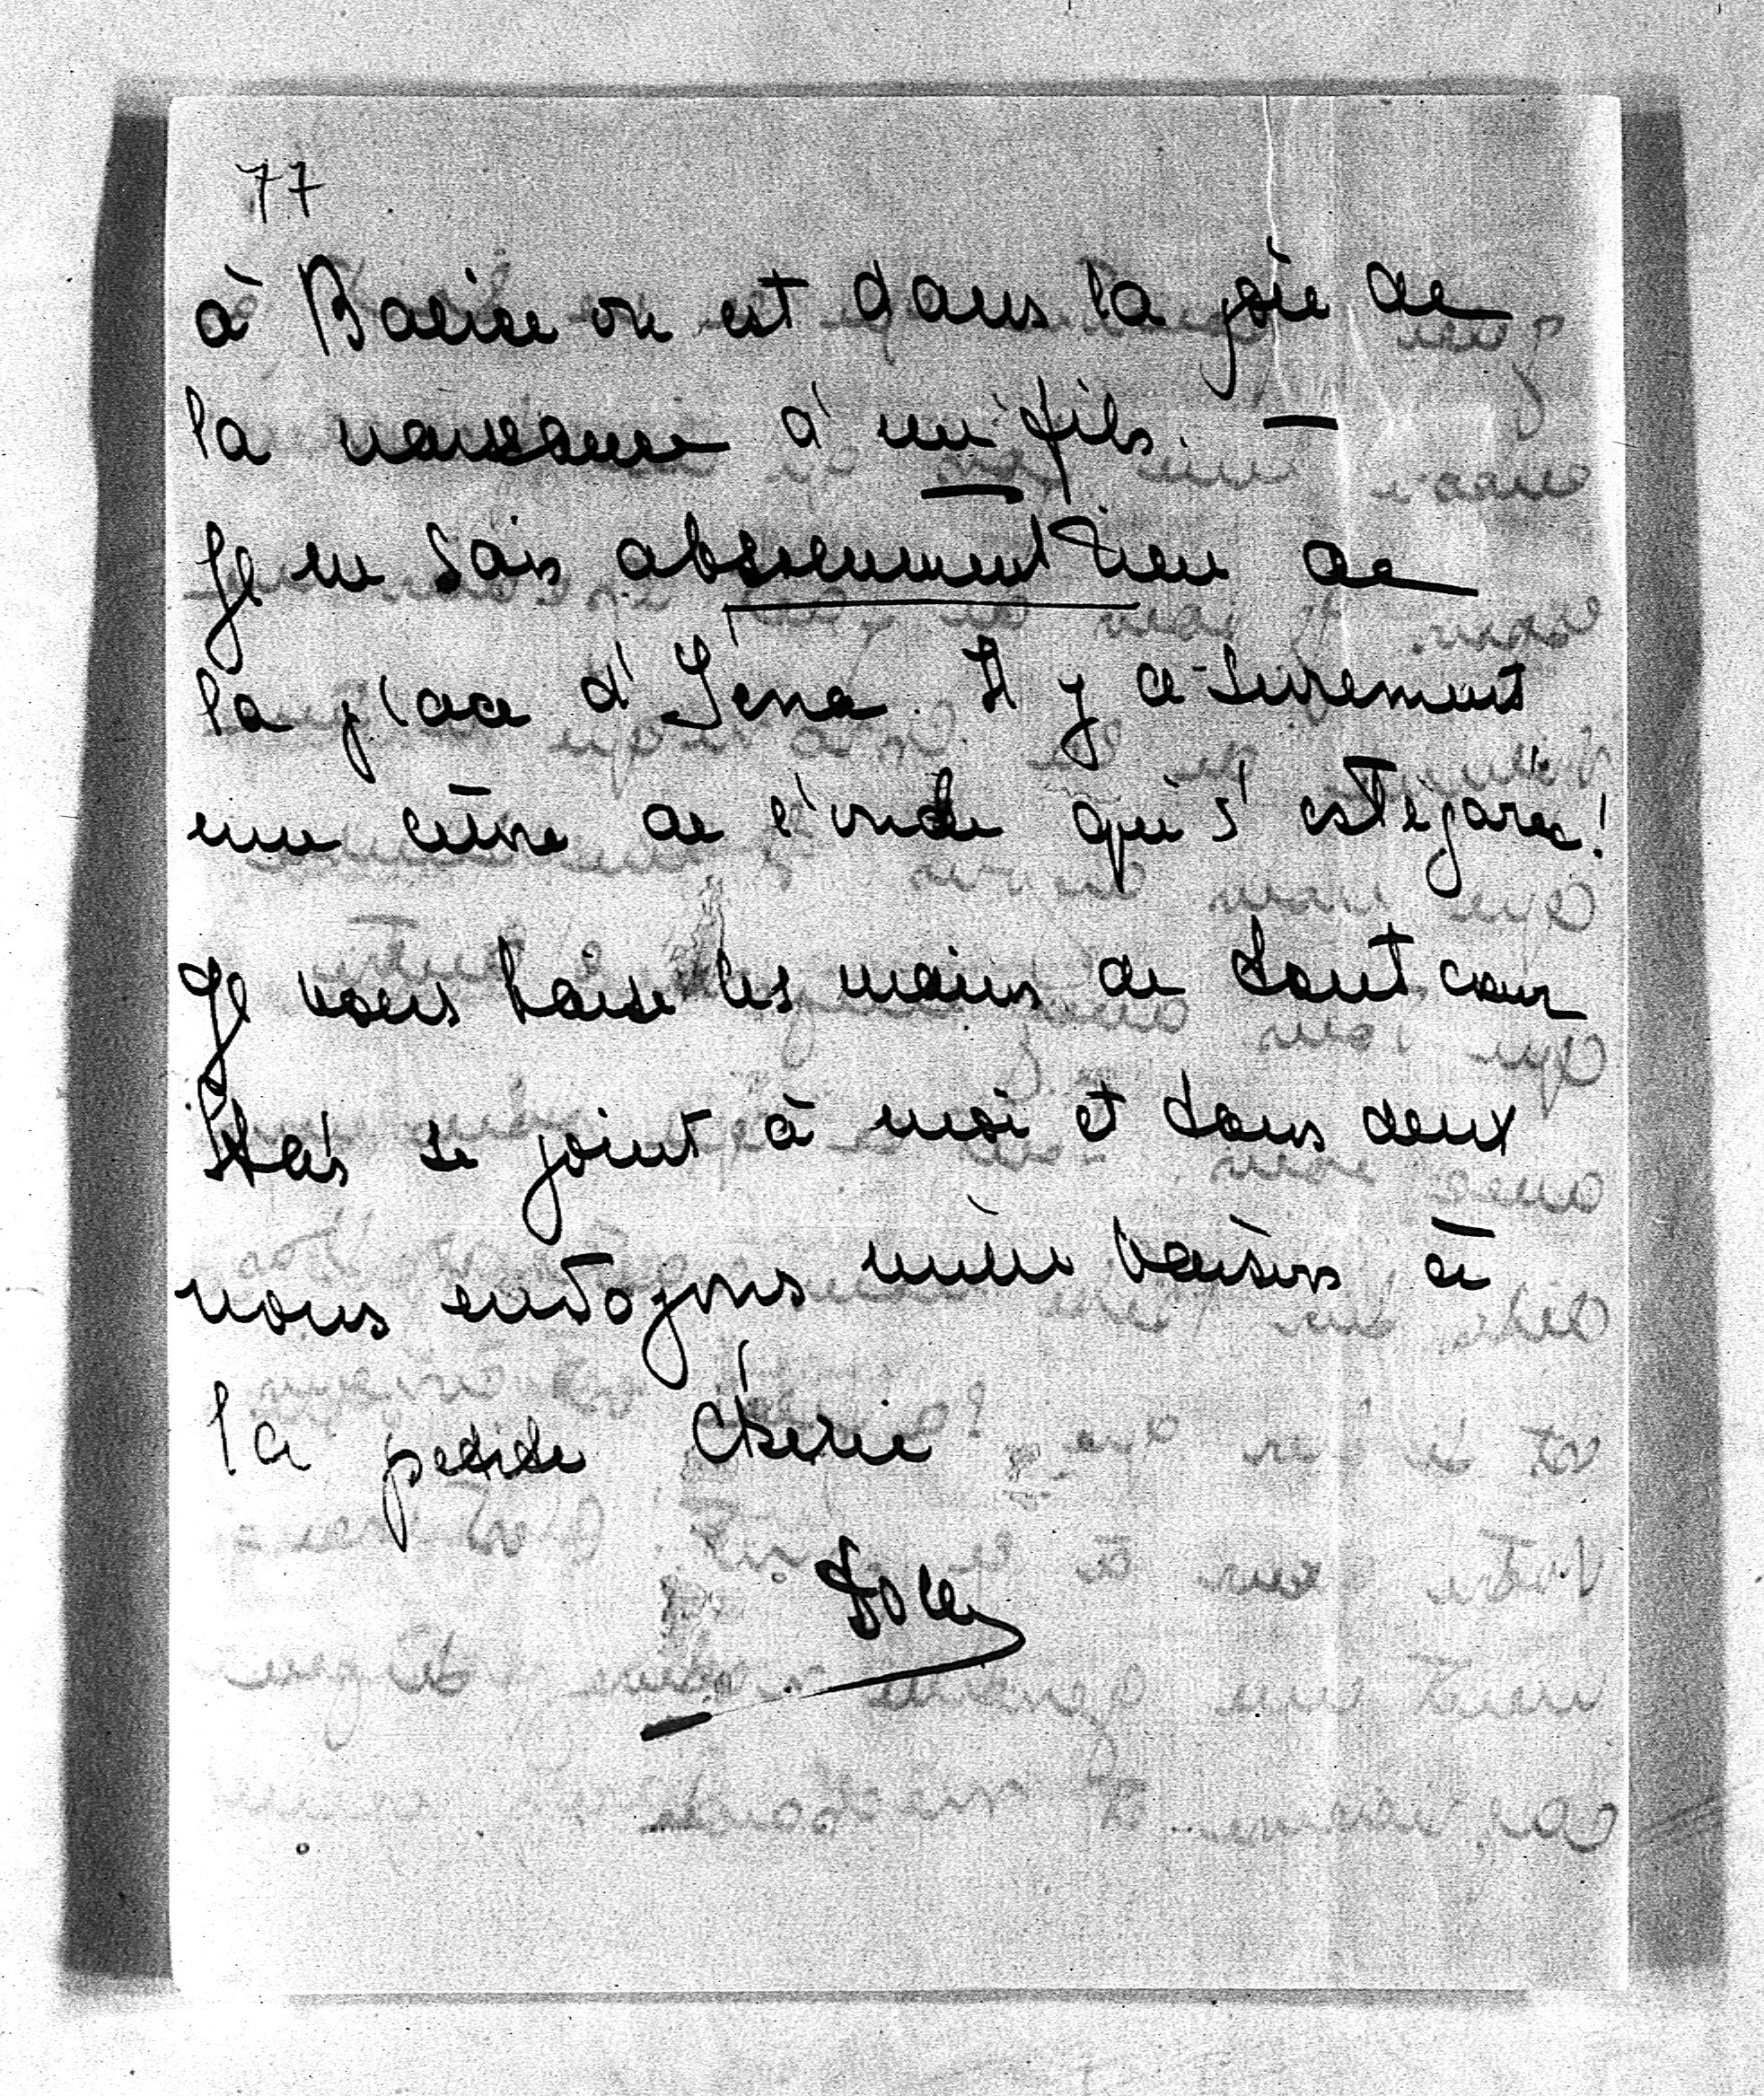 77
à Balice on est dans la joie de
la naissance d'un fils. —
Je ne sais absolument rien de
la place d'Iéna. Il y a surement
une lettre de l'oncle qui s'est égarée!
Je vous baise les mains de tout cœur
Staś se joint à moi et tous deux
nous envoyons mille baisers à
la petite chérie